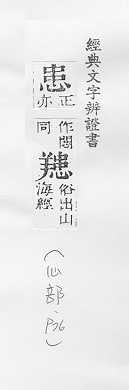 經典文字辨證書
患 正亦
作 同
俗出山海經
(心部, P36)